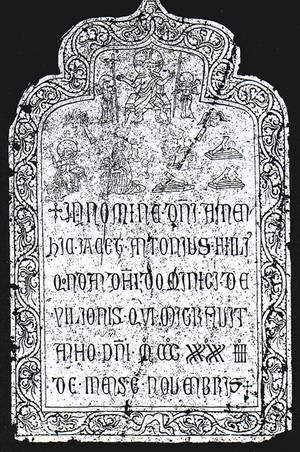 + IN NOMINE DNI AMEN
HIC JACET ANTONIUS FILI
Q·NDAM DNI DOMINICI DE
VILIONIS QVI MIGRAVIT
ANNO DNI M CCC XXXX IIII
DE MENSE NOVEMBRIS +